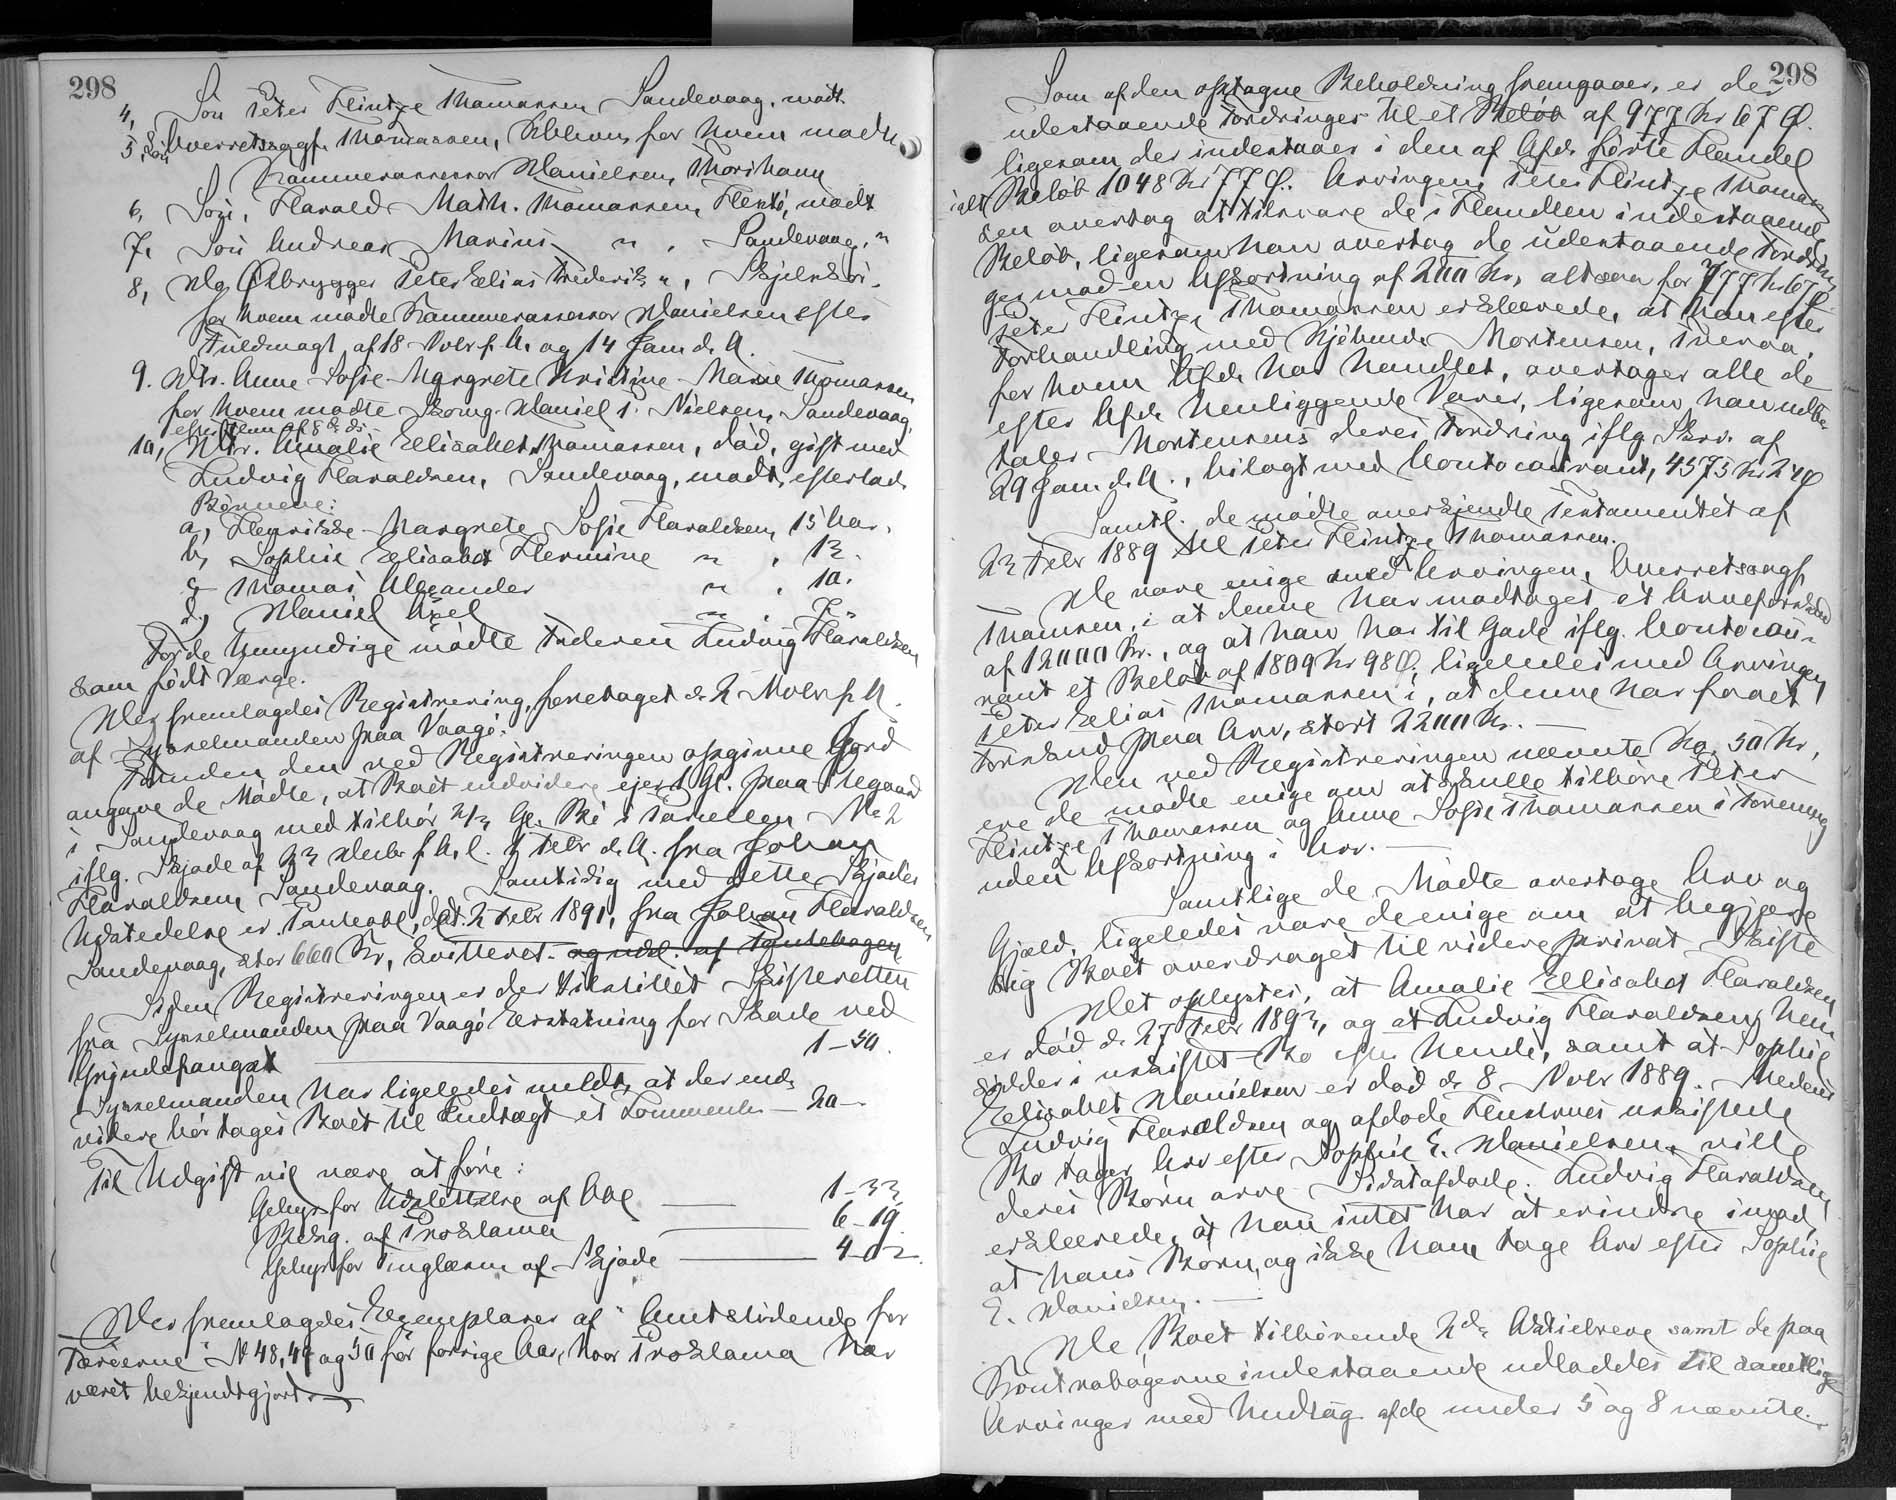 298
4, Søn Peter Flintze Thomassen Sandevaag, mødt
5, Søn Overretssagf. Thomassen, Kbhvn, for hvem mødte
Kammerassessor Danielsen, Thorshavn
6, Søn, Harald Math. Thomassen, mødt
7, Søn Andreas Marius " , Sandevaag, "
8, Do Ølbrygger Peter Elias Frederik " , Skjelskør
for hvem mødte Kammerassessor Danielsen efter
Fuldmagt af 18 Novbr f. A. og 14 Jan. d. A.
9. Dtr. Anne Sofie Margrete Kristine Marie Thomassen
for hvem mødte Skomg. Daniel J. Nielsen, Sandevaag,
efter af 8 ds.
10, Dtr. Amalie Elisabet Thomassen, død, gift med
Ludvig Haraldsen, Sandevaag, mødt, efterlad.
Børnene:
a, Henrikke Margrete Sofie Haraldsen, 15 Aar,
b, Sophie Elisabet Hermine " , 13.
c, Thomas Alexander " , 10.
d, Daniel Axel " , 7 "
For de Umyndige mødte Faderen Ludvig Haraldsen
som født Værge.
Der fremlagdes Registrering, foretaget d. 2 Novbr f. A.
af Sysselmanden paa Vaagø.
Foruden den ved Registreringen opgivne Jord
angave de Mødte, at Boet endvidere ejer 1 Gl. paa
i Sandevaag med tilhør 2/3 Gl. No 2
iflg. Skjøde af 23 Decbr f. A. l. Febr d. A. fra Johan
Haraldsen, Sandevaag. Samtidig med dette Skjødes
Udstedelse er Panteobl., dat. 2 Febr 1891, fra Johan Haraldsen
Sandevaag, stor 660 Kr, kvitteret og udsl. af Pantebogen
Siden Registreringen er der tilstillet Skifteretten
fra Sysselmanden paa Vaagø Erstatning for Skade ved
Gryndefangst 1 – 50.
Sysselmanden har ligeledes meldt, at der end
videre bør tages Boet til Indtægt et Lommeuhr – 20 –
Til Udgift vil være at føre:
Gebyr for Udslettelse af Obl. 1 – 33
Bekg. af Proklama 6 – 19
Gebyr for Tinglæsn. af Skjøde 4 – 02.
Der fremlagdes Exemplarer af "Amtstidende for
Færøerne" No 48, 49 og 50 for forrige Aar, hvor Proklama har
været bekjendtgjort. —
298
Som af den optagne Beholdning fremgaaer, er der
udestaaende Fordringer til et Beløb af 977 Kr 67 Ø.
ligesom der indestaaer i den af Afdø. førte Handel
et Beløb 1048 Kr 77 Ø. Arvingen Peter Flintze Thomas
sen overtog at tilsvare de i Handlen indestaaende
Beløb, ligesom han overtog de udestaaende Fordrin
ger mod en Afkortning af 200 Kr, altsaa for 777 Kr 67 Ø
Peter Flintze Thomassen erklærede, at han efter
Forhandling med Kjøbmd. Mortensen, Tveraa,
for hvem Afdø. har handlet, overtager alle de
efter Afdø. henliggende Varer, ligesom han udbe
taler Mortensens deres Fordring iflg. Skr. af
29 Jan. d. A., bilagt med Contocourant, 4575 Kr 24 Ø
Samtl. de mødte anerkjendte Testamentet af
23 Febr 1889 til Peter Flintze Thomassen.
De vare enige med Arvingen, Overretssagf.
Thomsen, i at denne har modtaget et Arveforskud
af 12000 Kr., og at han har til Gode iflg. Contocou-
rant et Beløb af 1809 Kr 98 Ø, ligeledes med Arvingen
Peter Elias Thomassen i, at denne har faaet
Forskud paa Arv, stort 2200 Kr. —
Den ved Registreringen nævnte Ko, 50 Kr,
ere de mødte enige om at skulle tilhøre Peter
Flintze Thomassen og Anne Sofie Thomassen i Forening
uden Afkortning i Arv. —
Samtlige de Mødte overtoge Arv og
Gjæld, ligeledes vare de enige om at begjære
sig Boet overdraget til videre privat Skifte
Det oplystes, at Amalie Ellisabet Haraldsen
er død d. 27 Febr 1893, og at Ludvig Haraldsen hen
sidder i uskiftet Bo efter hende, samt at Sophie
Elisabet Danielsen er død d. 8 Novbr 1889. Medens
Ludvig Haraldsen og afdøde Hustrues uskiftede
Bo tager Arv efter Sophie E. Danielsen, ville
deres Børn arve Sidstafdøde. Ludvig Haraldsen
erklærede, at han intet har at erindre imod,
at hans Børn, og ikke han tage Arv efter Sophie
E. Danielsen. —
De Boet tilhørende 2de Aktiebreve samt de paa
Kontrabøgerne indestaaende udloddes til samtlige
Arvinger med Undtag. af de under 5 og 8 nævnte.